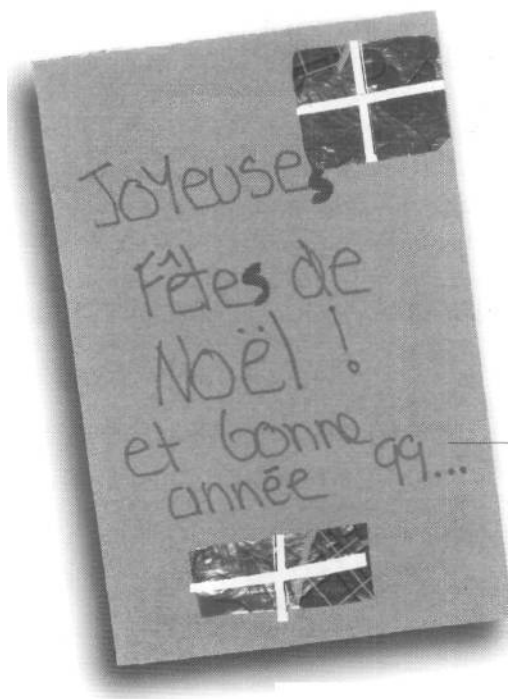 Joyeuses
Fêtes de
Noël !
et bonne
année 99...